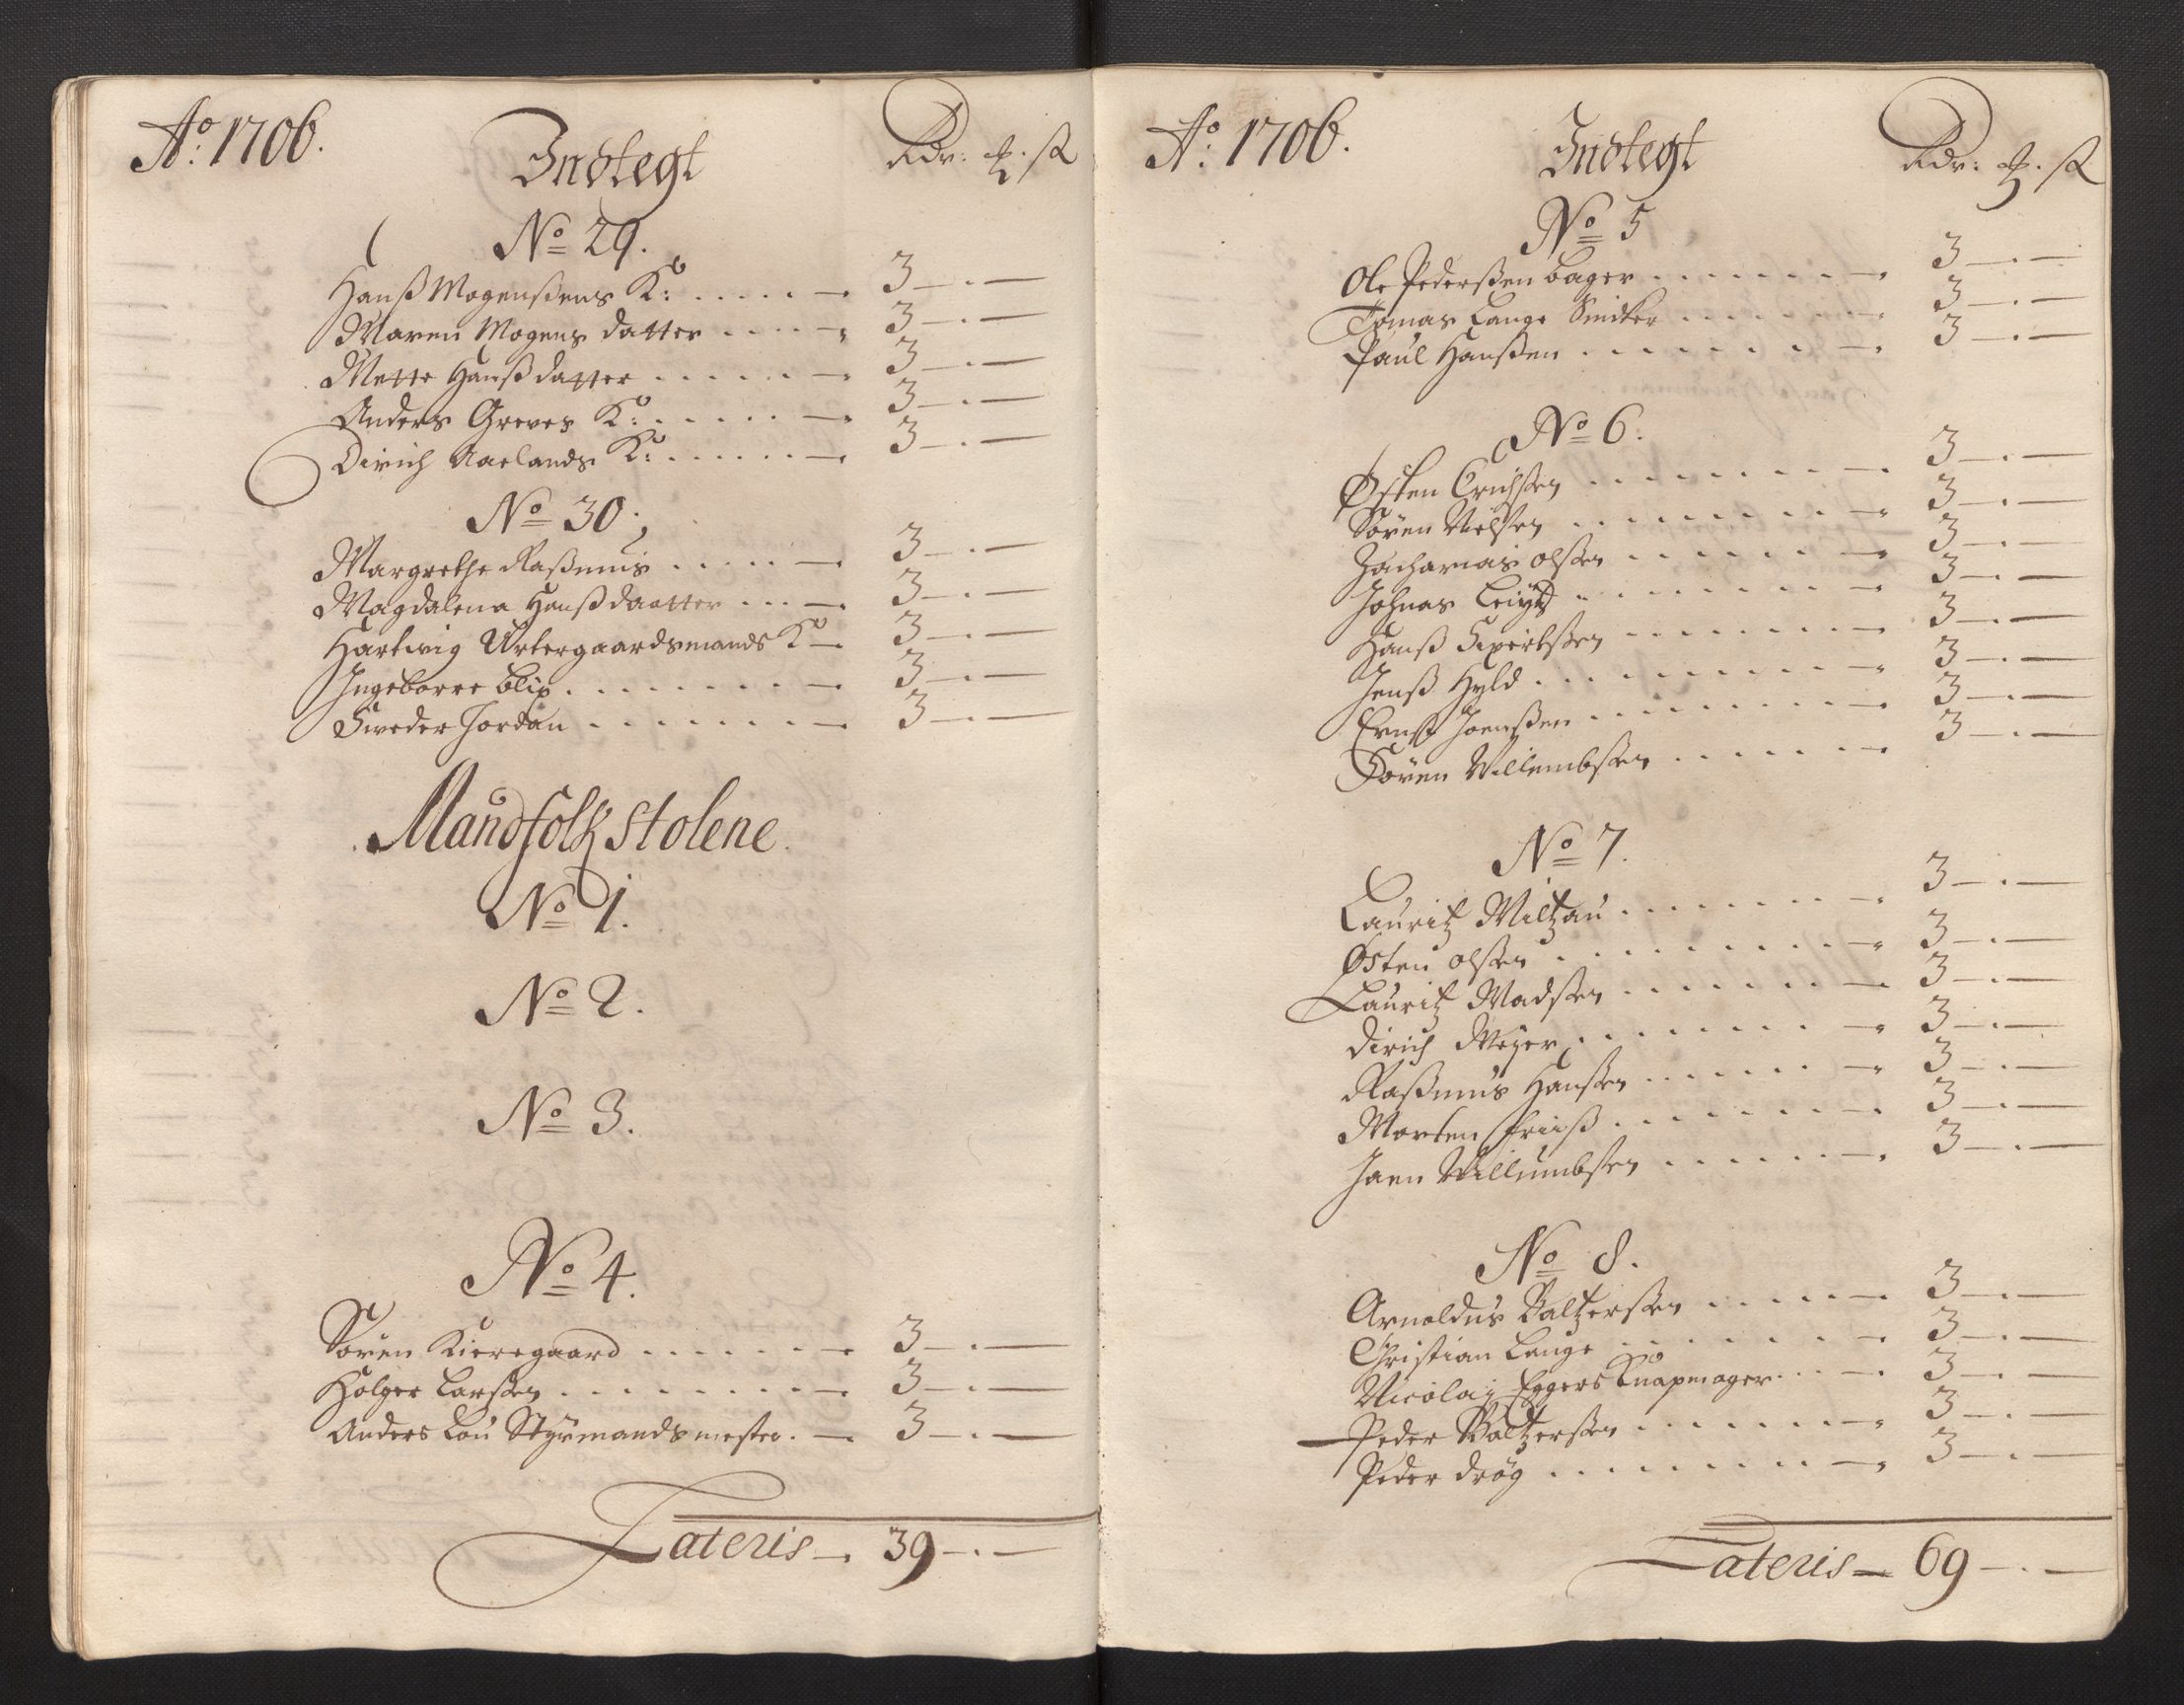 Ao: 1706.
Indtegt
Rdr: ₻. ß
No 29.
Hanß Mogenßens K: . . . . . 3 — . —
Maren Mogens datter . . . . 3 — . —
Mette Hanß datter . . . . . 3 — . —
Anders Greves K: . . . . . 3 — . —
Dirich Aaelands K: . . . . . . 3 — . —
No 30.
Margrethe Raßmus . . . . . 3 — . —
Magdalena Hanß daatter . . . 3 — . —
Hartwig Urtergaardsmands K — 3 — . —
Ingeborre Blix . . . . . . . . 3 — . —
Sweder Jordan . . . . . . . . 3 — . —
Mandfolk stolene.
No 1.
No 2.
No 3.
No 4.
Søren Kieregaard . . . . . . . 3 — . —
Holger Larßen . . . . . . . . 3 — . —
Anders Lou Styrmands mester. — 3 — . —
Lateris — . 39 — . —
Ao: 1706.
Indtegt
Rdr: ₻. ß
No 5
Ole Pederßen bager . . . . . . . 3 — . —
Tomas Lange Snidker . . . . . . 3 — . —
Paul Hanßen . . . . . . . . 3 — . —
No 6.
Østen Erichßen . . . . . . . . 3 — . —
Søren Nelßen . . . . . . . . 3 — . —
Zacharias olßen . . . . . . . 3 — . —
Johnas . . . . . . . . 3 — . —
Hanß Sixvertßen . . . . . . . 3 — . —
Jenß Hyld . . . . . . . . . 3 — . —
Ernst Joenßen . . . . . . . . 3 — . —
Søren Villembßen . . . . . . 3 — . —
No 7.
Lauritz Miltzau . . . . . . . . 3 — . —
Østen olßen . . . . . . . . . 3 — . —
Lauritz Madßen . . . . . . . 3 — . —
Dirich Meyer . . . . . . . . 3 — . —
Raßmus Hanßen . . . . . . . 3 — . —
Morten friiß . . . . . . . . 3 — . —
Jaen Villumbßen . . . . . . 3 — . —
No 8.
Arnoldus Baltzerßen . . . . . 3 — . —
Christian Lange . . . . . . . 3 — . —
Nicolai Eggers Knapmager . . . 3 — . —
Peder Baltzerßen . . . . . . . 3 — . —
Peder drøg . . . . . . . . . 3 — . —
Lateris — 69 — . —